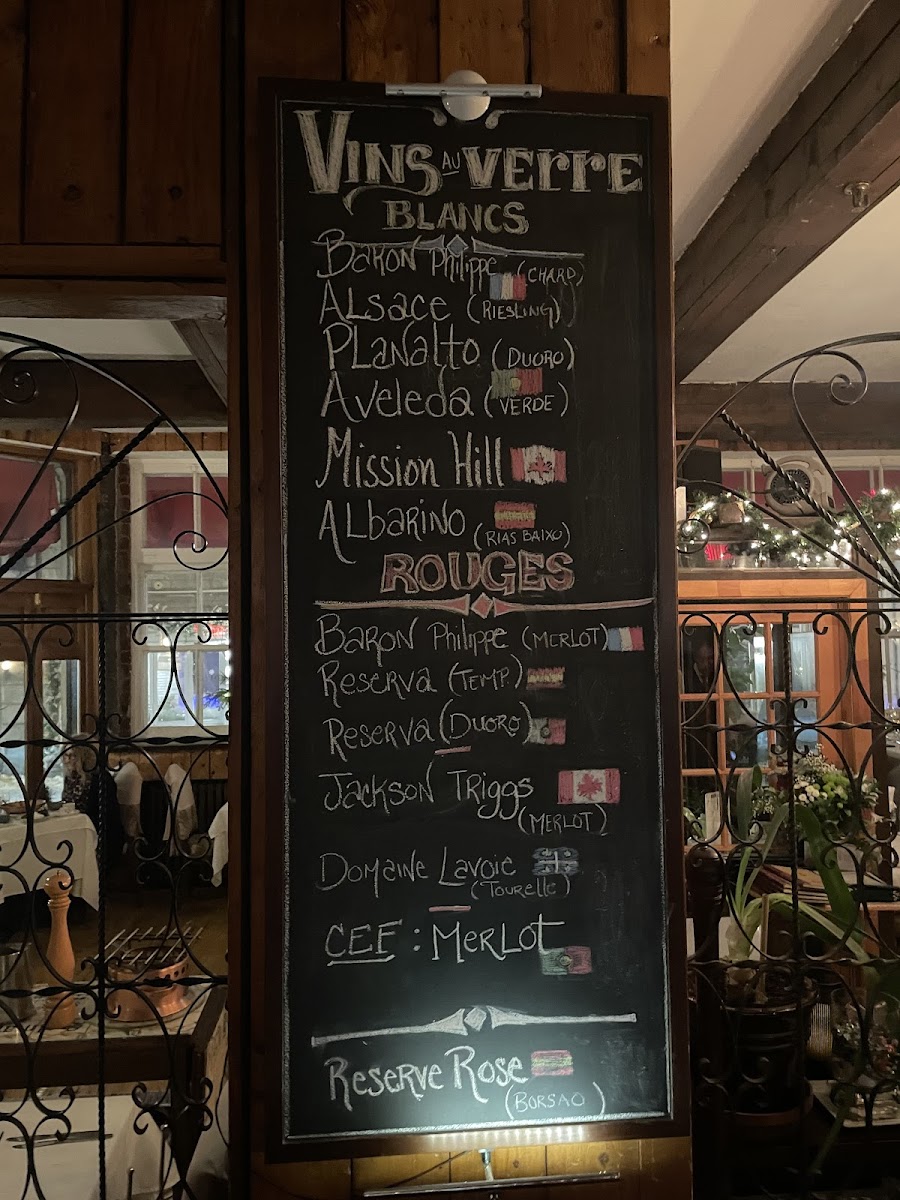 Vins au verre
Blancs
Baron Philippe (Chard)
Alsace (Riesling)
Planalto (Duoro)
Aveleda (Verde)
Mission Hill
Albarino
(Rias Baixo)
Rouges
Baron Philippe (Merlot)
Reserva (Temp.)
Reserva (Duoro)
Jackson Triggs
(Merlot)
Domaine Lavoie
(Tourelle)
CEF : Merlot
Reserve Rose
(Borsao)